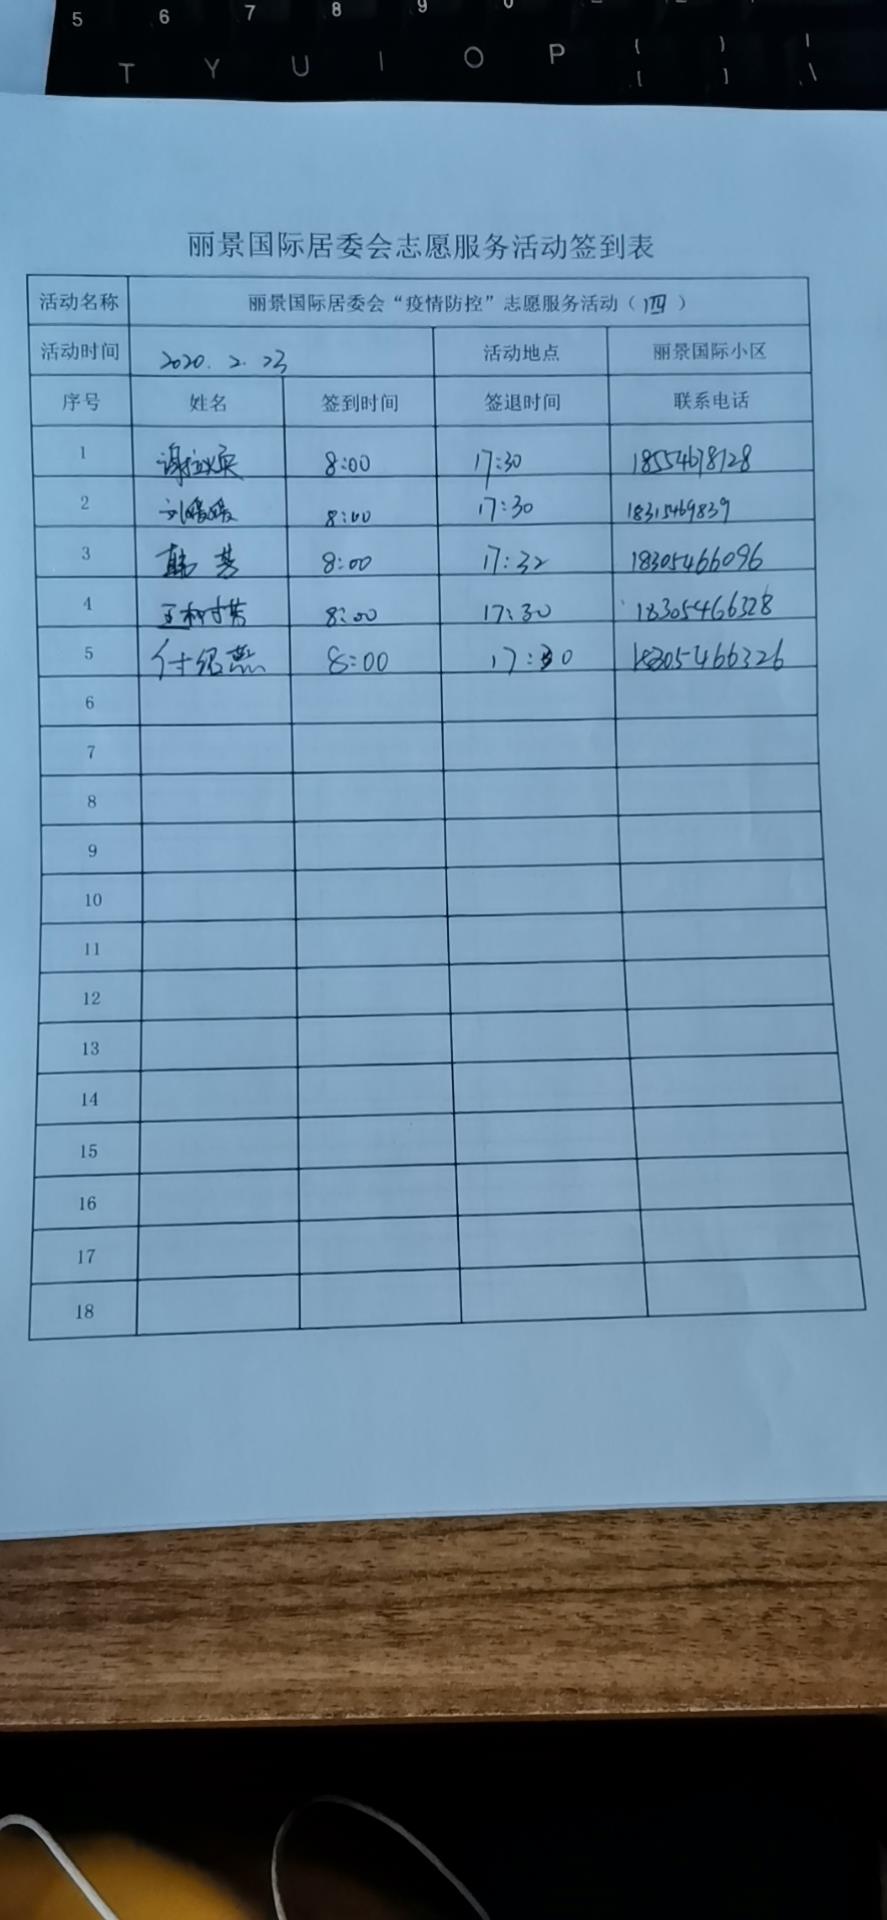 5 6 7 8 9 0
T Y U I O P { [ } ] | \
丽景国际居委会志愿服务活动签到表
活动名称 丽景国际居委会“疫情防控”志愿服务活动（四）
活动时间 2020.2.23 活动地点 丽景国际小区
序号 姓名 签到时间 签退时间 联系电话
1 8:00 17:30 18554678128
2 刘媛媛 8:00 17:30 18315469839
3 韩梦 8:00 17:32 18305466096
4 8:00 17:30 18305466328
5 付绍燕 8:00 17:30 18305466326
6
7
8
9
10
11
12
13
14
15
16
17
18